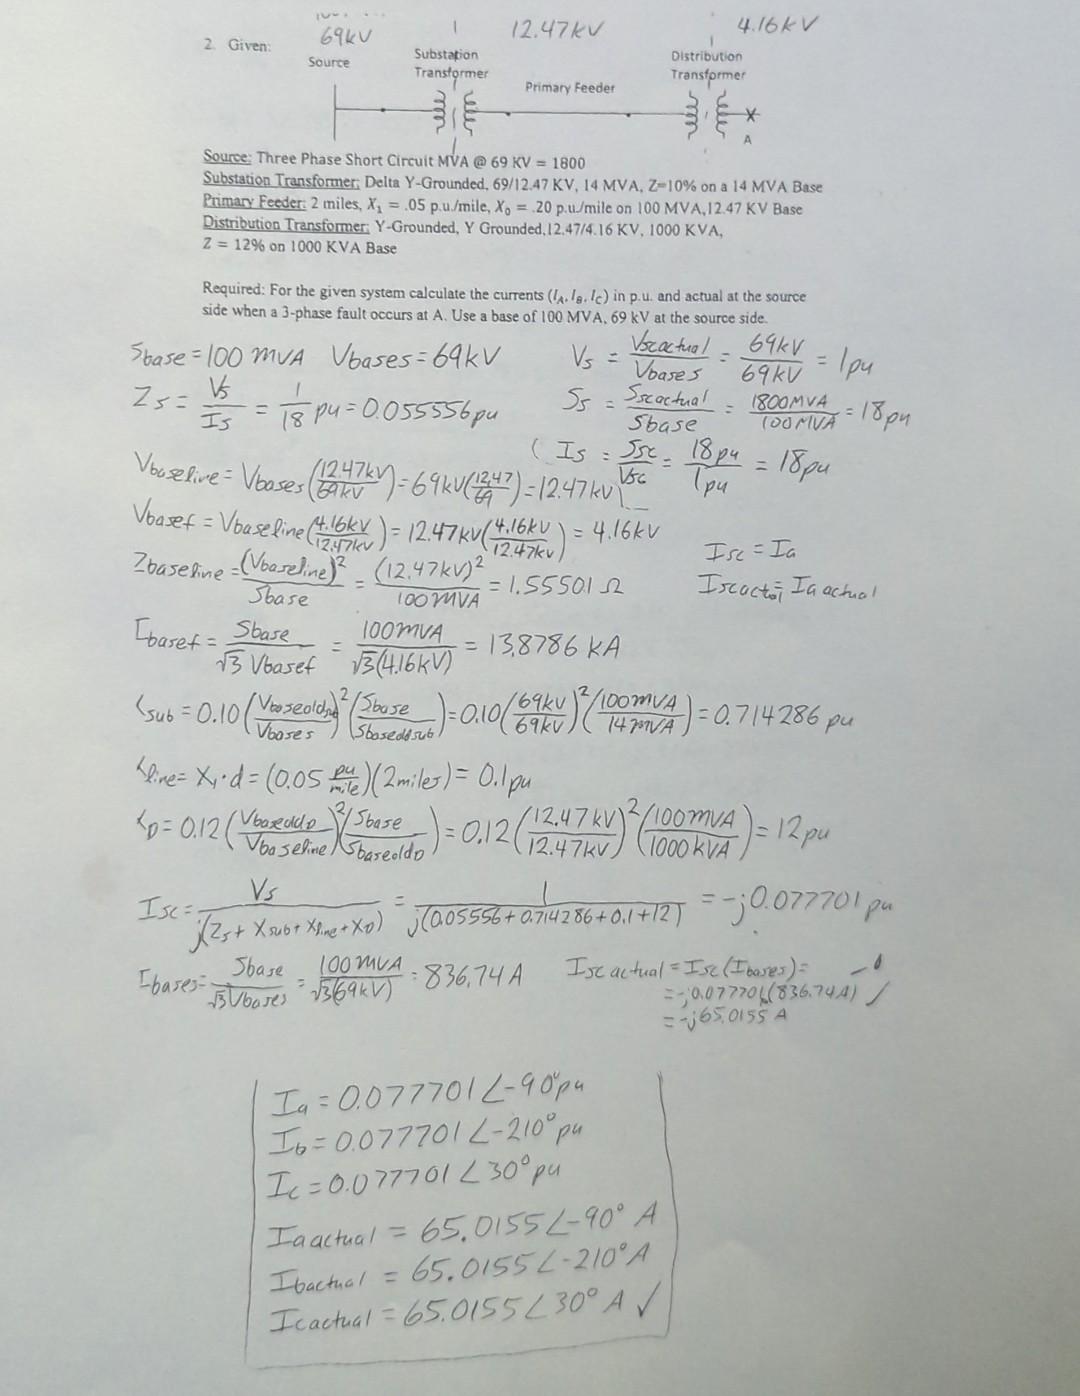 69kV 12.47kV 4.16kV
2. Given:
Source
Substation
Transformer
Primary Feeder
Distribution
Transformer
A
Source: Three Phase Short Circuit MVA @ 69 KV = 1800
Substation Transformer: Delta Y-Grounded, 69/12.47 KV, 14 MVA, Z=10% on a 14 MVA Base
Primary Feeder: 2 miles, X₁ = .05 p.u./mile, X₀ = .20 p.u./mile on 100 MVA,12.47 KV Base
Distribution Transformer: Y-Grounded, Y Grounded,12.47/4.16 KV, 1000 KVA,
Z = 12% on 1000 KVA Base
Required: For the given system calculate the currents (I_A, I_B, I_C) in p.u. and actual at the source
side when a 3-phase fault occurs at A. Use a base of 100 MVA, 69 kV at the source side.
Sbase = 100 MVA Vbases = 69kV Vs = Vscactual/Vbases = 69kV/69kV = 1pu
Zs = Vs/Is = 1/18 pu = 0.055556pu Ss = Sscactual/Sbase = 1800MVA/100MVA = 18pu
( Is = Ssc/Vsc = 18pu/1pu = 18pu
Vbaseline = Vbases(12.47kV/69kV) = 69kV(12.47/69) = 12.47kV
Vbasef = Vbaseline(4.16kV/12.47kV) = 12.47kV(4.16kV/12.47kV) = 4.16kV
Isc = Ia
Zbaseline = (Vbaseline)²/Sbase = (12.47kV)²/100MVA = 1.55501 Ω
Iscactal = Ia actual
Ibasef = Sbase/√3 Vbasef = 100MVA/√3(4.16kV) = 13.8786 kA
Xsub = 0.10(Vbaseoldsub/Vbases)²(Sbase/Sbaseoldsub) = 0.10(69kV/69kV)²(100MVA/14MVA) = 0.714286 pu
Xline = X₁·d = (0.05 pu/mile)(2miles) = 0.1pu
XD = 0.12(VbaseoldD/Vbaseline)²(Sbase/SbaseoldD) = 0.12(12.47kV/12.47kV)²(100MVA/1000kVA) = 12pu
Isc = Vs/j(Zs + Xsub + Xline + XD) = 1/j(0.05556+0.714286+0.1+12) = -j0.077701 pu
Ibases = Sbase/√3Vbases = 100MVA/√3(69kV) = 836.74 A Isc actual = Isc(Ibases) =
= -j0.077701(836.74A) ✓
= -j65.0155 A
Ia = 0.077701∠-90°pu
Ib = 0.077701∠-210°pu
Ic = 0.077701∠30°pu
Iaactual = 65.0155∠-90° A
Ibactual = 65.0155∠-210° A
Icactual = 65.0155∠30° A ✓